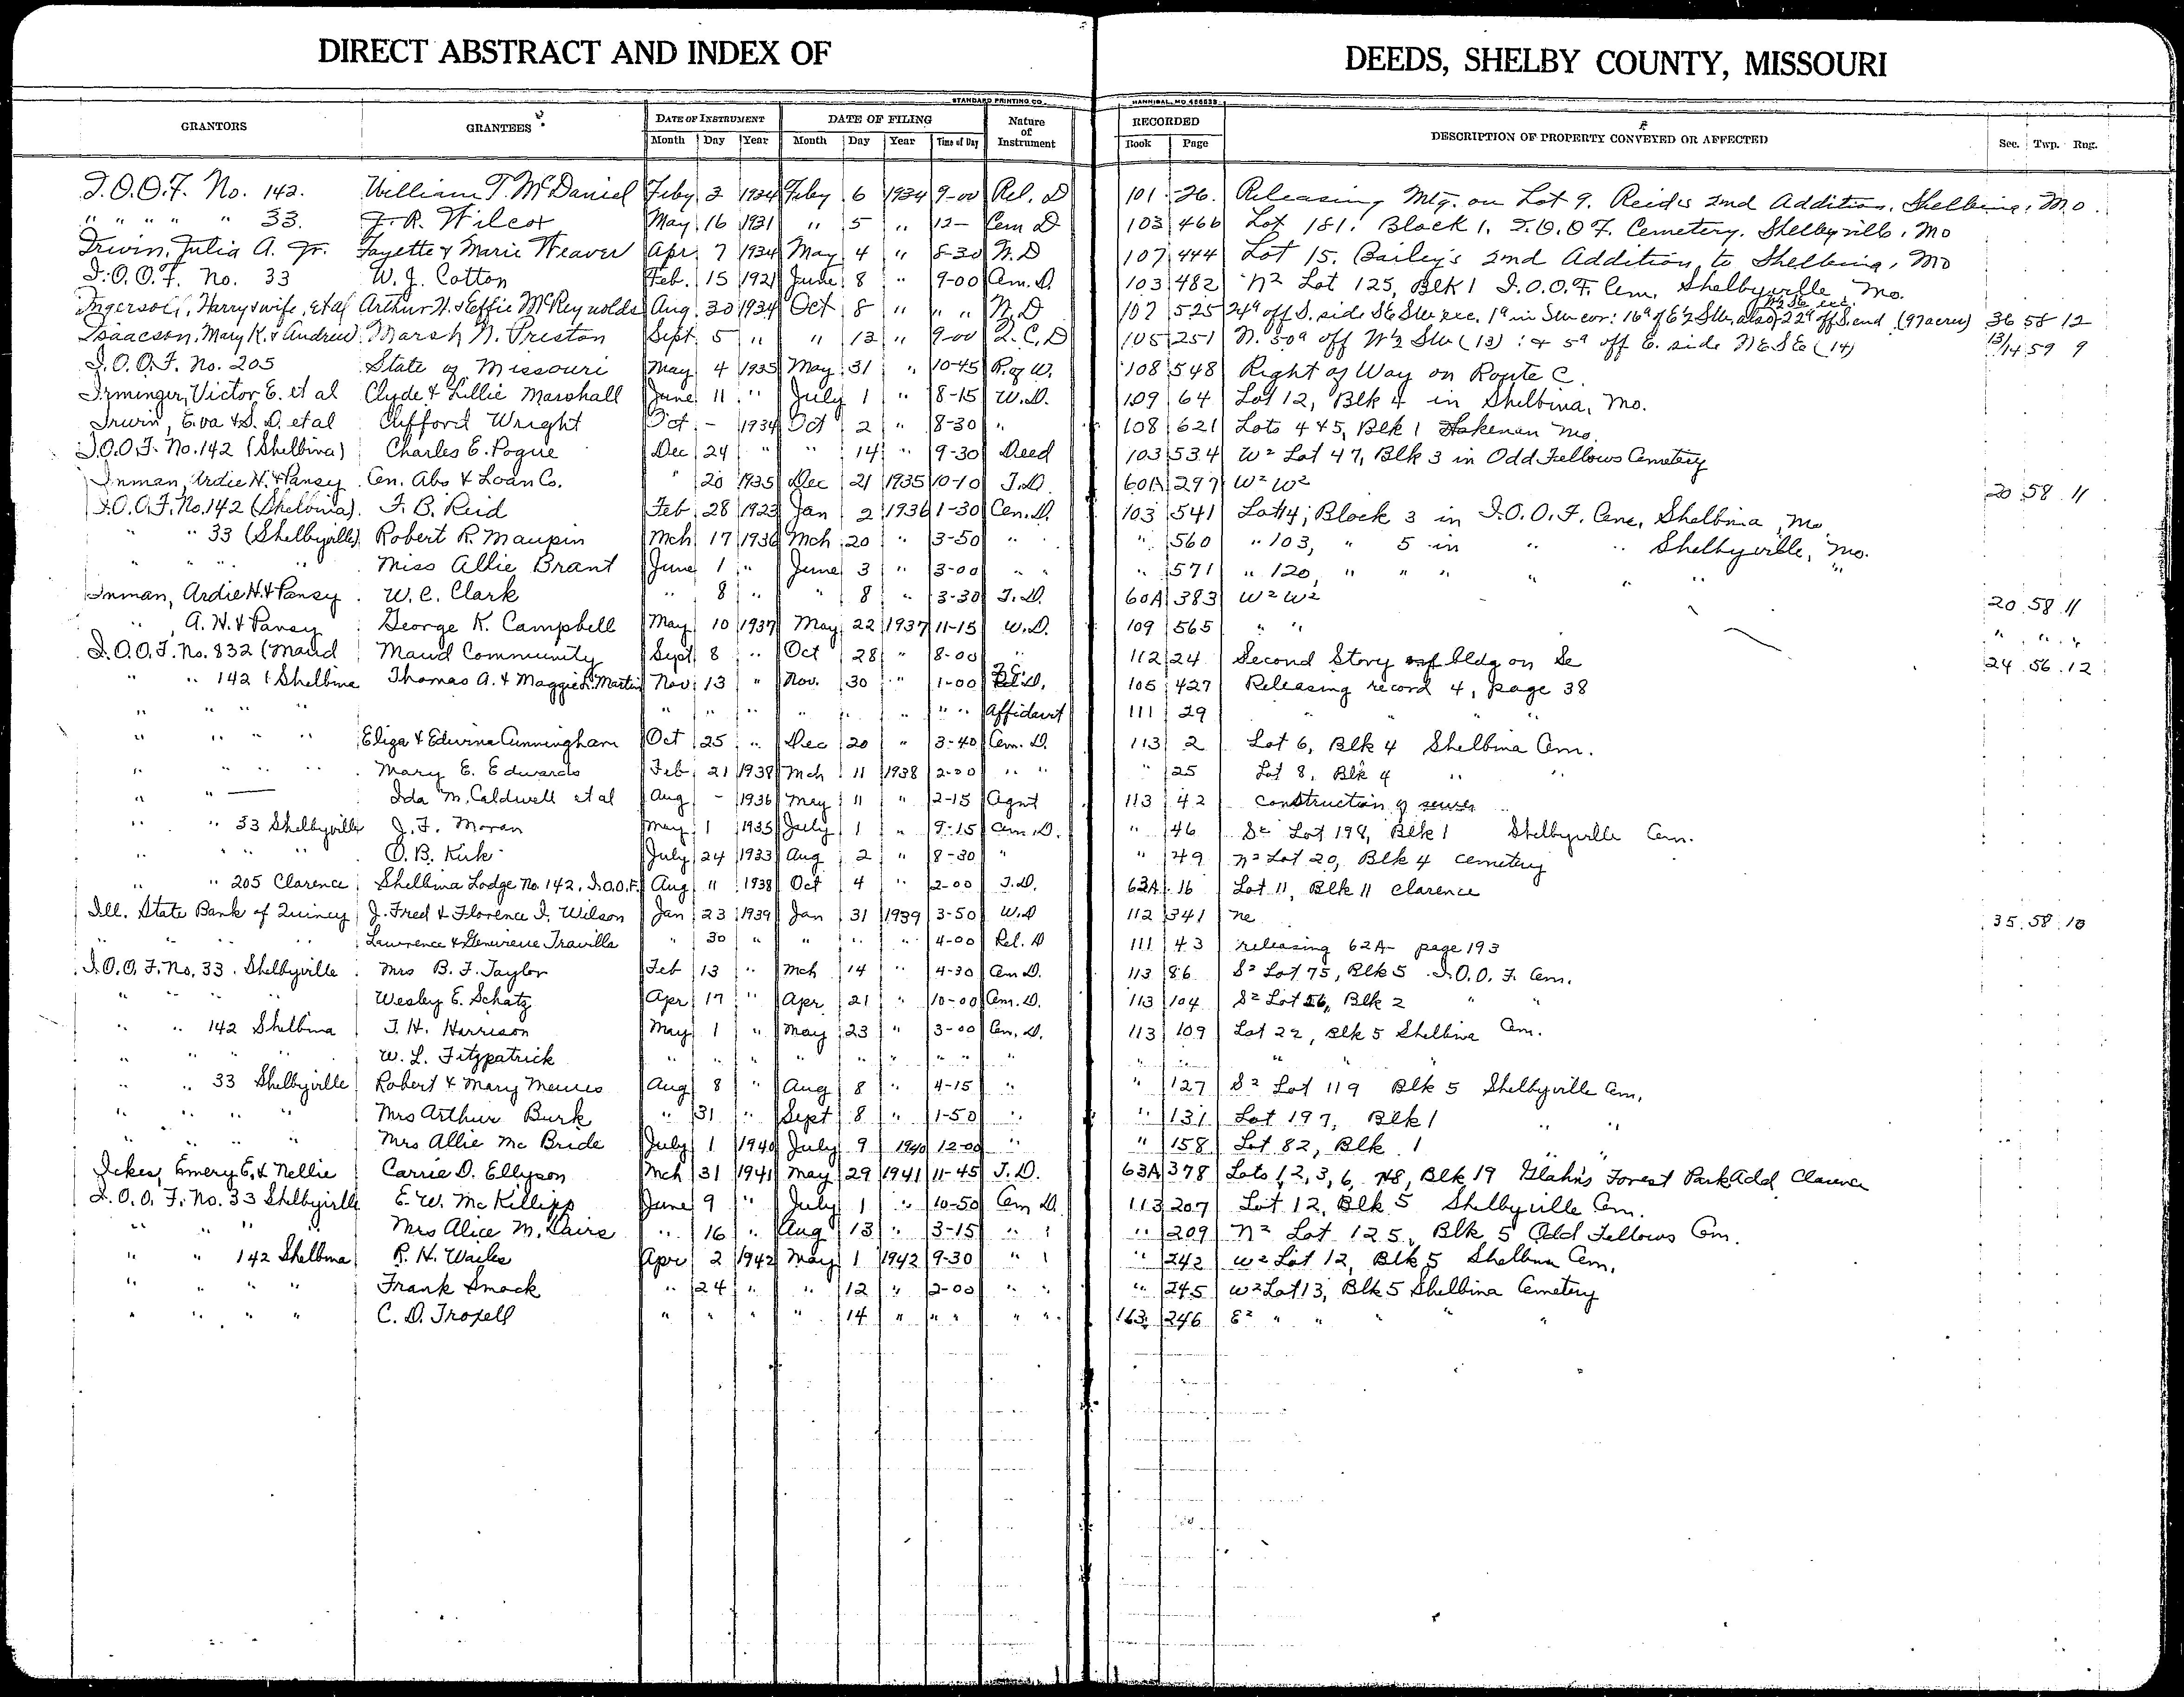 DIRECT ABSTRACT AND INDEX OF DEEDS, SHELBY COUNTY, MISSOURI
STANDARD PRINTING CO. HANNIBAL, MO
GRANTORS GRANTEES DATE OF INSTRUMENT DATE OF FILING Nature of Instrument RECORDED DESCRIPTION OF PROPERTY CONVEYED OR AFFECTED Sec. Twp. Rng.
Month Day Year Month Day Year Time of Day Book Page
I.O.O.F. No. 142. William T. McDaniel Feby 2 1934 Feby 6 1934 9-00 Rel. D 101 26. Releasing Mtg. on Lot 9. Reid's 2nd Addition, Shelbina, Mo.
" " " " " 33. J. R. Wilcox May 16 1931 " 5 " 12- Cem D 103 466 Lot 181. Block 1. I.O.O.F. Cemetery. Shelbyville, Mo
Irwin, Julia A. Jr. Fayette & Marie Weaver Apr 7 1934 May 4 " 8-30 W.D 107 444 Lot 15. Bailey's 2nd Addition to Shelbina, Mo
I.O.O.F. No. 33 W. J. Cotton Feb. 15 1921 June 8 " 9-00 Cem. D. 103 482 N2 Lot 125, Blk 1 I.O.O.F. Cem. Shelbyville Mo.
Ingersoll, Harry & wife, et al Arthur H. & Effie McReynolds Aug. 30 1934 Oct 8 " " " W.D 107 525 24a off S. side SE SW sec. 1a in SW cor: 16a of E½ SW, also 22a off S. end (97 acres) 36 58 12
Isaacson, Mary K. & Andrew Marsh N. Preston Sept 5 " " 13 " 9-00 Q.C.D 105 251 N. 50a off W½ SW (13) : & 5a off E. side NE SE (14) 13/14 59 9
I.O.O.F. No. 205 State of Missouri May 4 1935 May 31 " 10-45 R. of W. 108 548 Right of Way on Route C.
Irminger, Victor E. et al Clyde & Lillie Marshall June 11 " July 1 " 8-15 W.D. 109 64 Lot 12, Blk 4 in Shelbina, Mo.
Irwin, Eva & S. D. et al Clifford Wright Oct - 1934 Oct 2 " 8-30 " 108 621 Lots 4 & 5, Blk 1 Hakenan Mo.
I.O.O.F. No. 142 (Shelbina) Charles E. Pogue Dec 24 " " 14 " 9-30 Deed 103 534 W2 Lot 47, Blk 3 in Odd Fellows Cemetery
Inman, Ardie H. & Pansy Cen. Abs & Loan Co. " 20 1935 Dec 21 1935 10-10 T.D. 60A 297 W2 W2 20 58 11
I.O.O.F. No. 142 (Shelbina) F. B. Reid Feb 28 1923 Jan 2 1936 1-30 Cem. D. 103 541 Lot 14, Block 3 in I.O.O.F. Cem, Shelbina, Mo.
" " 33 (Shelbyville) Robert R. Maupin Mch 17 1936 Mch 20 " 3-50 " " " 560 " 103, " 5 in " " Shelbyville, Mo.
" " " " Miss Allie Brant June 1 " June 3 " 3-00 " " " 571 " 120, " " " " " " "
Inman, Ardie H. & Pansy W. C. Clark " 8 " " 8 " 3-30 T.D. 60A 383 W2 W2 20 58 11
" , A. H. & Pansy George K. Campbell May 10 1937 May 22 1937 11-15 W.D. 109 565 " " " " "
I.O.O.F. No. 832 (Maud Maud Community Sept 8 " Oct 28 " 8-00 " 112 24 Second Story of bldg on Se 24 56 12
" " 142 (Shelbina Thomas A. & Maggie L. Martin Nov. 13 " Nov. 30 " 1-00 105 427 Releasing record 4, page 38
" " " " " " " " " " " " Affidavit 111 29 " " " "
" " " " Eliza & Edwina Cunningham Oct 25 " Dec 20 " 3-40 Cem. D. 113 2 Lot 6, Blk 4 Shelbina Cem.
" " " " Mary E. Edwards Feb 21 1938 Mch 11 1938 2-00 " " " 25 Lot 8, Blk 4 " "
" " — Ida M. Caldwell et al Aug - 1936 May 11 " 2-15 Agmt 113 42 construction of sewer
" " 33 Shelbyville J. F. Moran May 1 1935 July 1 " 9-15 Cem. D. " 46 S2 Lot 198, Blk 1 Shelbyville Cem.
" " " " O. B. Kirk July 24 1933 Aug 2 " 8-30 " " 49 N2 Lot 20, Blk 4 cemetery
" " 205 Clarence Shelbina Lodge No. 142, I.O.O.F. Aug 11 1938 Oct 4 " 2-00 T.D. 63A 16 Lot 11, Blk 11 Clarence
Ill. State Bank of Quincy J. Fred & Florence I. Wilson Jan 23 1939 Jan 31 1939 3-50 W.D 112 341 ne 35 58 10
" " " " Lawrence & Genevieve Travilla " 30 " " " " 4-00 Rel. D 111 43 releasing 62A- page 193
I.O.O.F. No. 33 Shelbyville Mrs B. F. Taylor Feb 13 " Mch 14 " 4-30 Cem D. 113 86 S2 Lot 75, Blk 5 I.O.O.F. Cem.
" " " Wesley E. Schatz Apr 17 " Apr 21 " 10-00 Cem. D. 113 104 S2 Lot 56, Blk 2 " "
" " 142 Shelbina T. H. Harrison May 1 " May 23 " 3-00 Cem. D. 113 109 Lot 22, Blk 5 Shelbina Cem.
" " " " W. L. Fitzpatrick " " " " " " " " " " " " " "
" " 33 Shelbyville Robert & Mary Meures Aug 8 " Aug 8 " 4-15 " " 127 S2 Lot 119 Blk 5 Shelbyville Cem.
" " " " Mrs Arthur Burk " 31 " Sept 8 " 1-50 " " 131 Lot 197, Blk 1 " "
" " " " Mrs Allie McBride July 1 1940 July 9 1940 12-00 " " 158 Lot 82, Blk 1 " "
Ickes, Emery E. & Nellie Carrie D. Ellyson Mch 31 1941 May 29 1941 11-45 T.D. 63A 378 Lots 1, 2, 3, 6, 7&8, Blk 19 Glahn's Forest Park Add. Clarence
I.O.O.F. No. 33 Shelbyville E. W. McKillipp June 9 " July 1 " 10-50 Cem D. 113 207 Lot 12, Blk 5 Shelbyville Cem.
" " " Mrs Alice M. Davis " 16 " Aug 13 " 3-15 " " " 209 N2 Lot 125, Blk 5 Odd Fellows Cem.
" " 142 Shelbina R. H. Wailes Apr 2 1942 May 1 1942 9-30 " " " 242 W2 Lot 12, Blk 5 Shelbina Cem.
" " " " Frank Smock " 24 " " 12 " 2-00 " " " 245 W2 Lot 13, Blk 5 Shelbina Cemetery
" " " " C. D. Troxell " " " " 14 " " " " " 163 246 E2 " " " " "